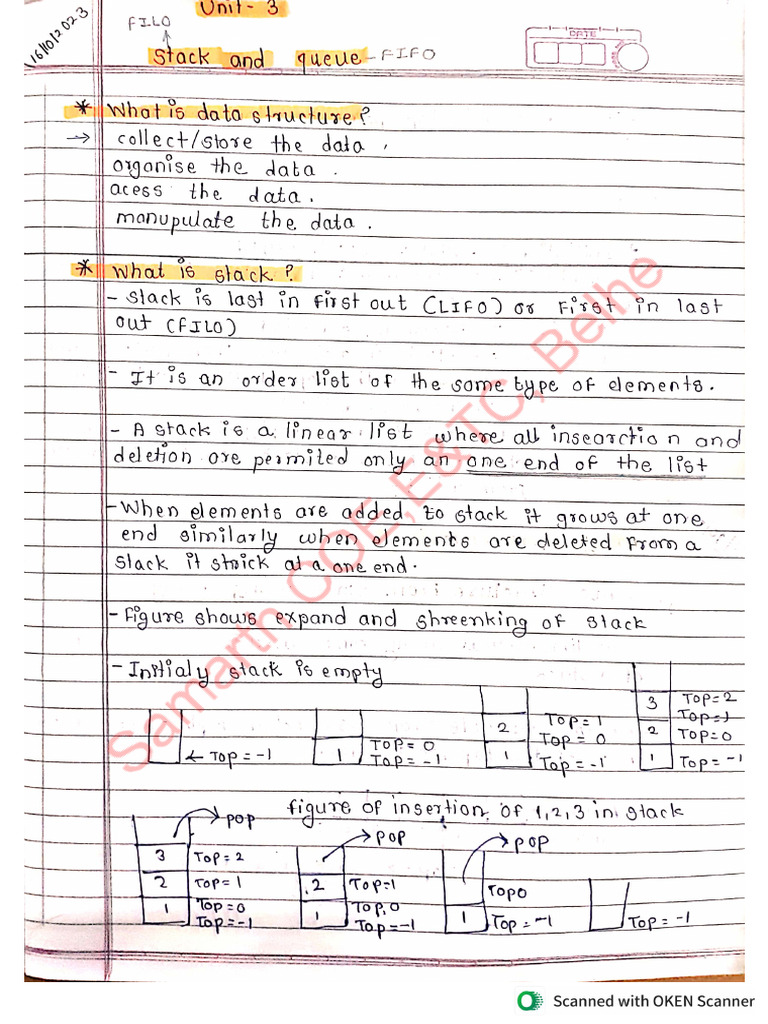 16/10/2023
Unit-3
FILO
Stack and queue - FIFO
DATE
* What is data structure?
→ collect/store the data.
organise the data.
acess the data.
manupulate the data.
* What is stack?
- Stack is last in first out (LIFO) or First in last
out (FILO)
- It is an order list of the same type of elements.
- A stack is a linear list where all insearction and
deletion are permited only an one end of the list
- When elements are added to stack it grows at one
end similarly when elements are deleted from a
stack it strick at a one end.
- Figure shows expand and shreenking of stack
- Initialy stack is empty
← Top = -1
1 Top = 0
Top = -1
2 Top = 1
Top = 0
1 Top = -1
3 Top = 2
Top = 1
2 Top = 0
1 Top = -1
figure of insertion of 1, 2, 3 in stack
pop
3 Top = 2
2 Top = 1
1 Top = 0
Top = -1
pop
2 Top = 1
Top, 0
1 Top = -1
pop
Top 0
1 Top = -1
Top = -1
Samarth COE, E&TC, Belhe
Scanned with OKEN Scanner